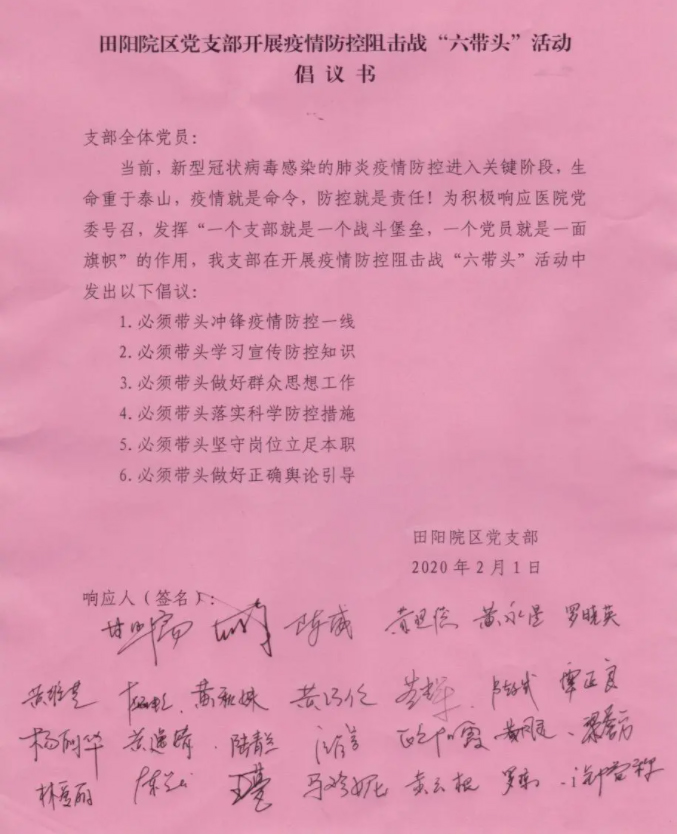 田阳院区党支部开展疫情防控阻击战“六带头”活动
倡议书
支部全体党员：
当前，新型冠状病毒感染的肺炎疫情防控进入关键阶段，生
命重于泰山，疫情就是命令，防控就是责任！为积极响应医院党
委号召，发挥“一个支部就是一个战斗堡垒，一个党员就是一面
旗帜”的作用，我支部在开展疫情防控阻击战“六带头”活动中
发出以下倡议：
1.必须带头冲锋疫情防控一线
2.必须带头学习宣传防控知识
3.必须带头做好群众思想工作
4.必须带头落实科学防控措施
5.必须带头坚守岗位立足本职
6.必须带头做好正确舆论引导
田阳院区党支部
2020年2月1日
响应人（签名）：
陈威 罗晓英
黄巧伦 谭正良
杨丽华 陆青兰
马婷妮 黄云根